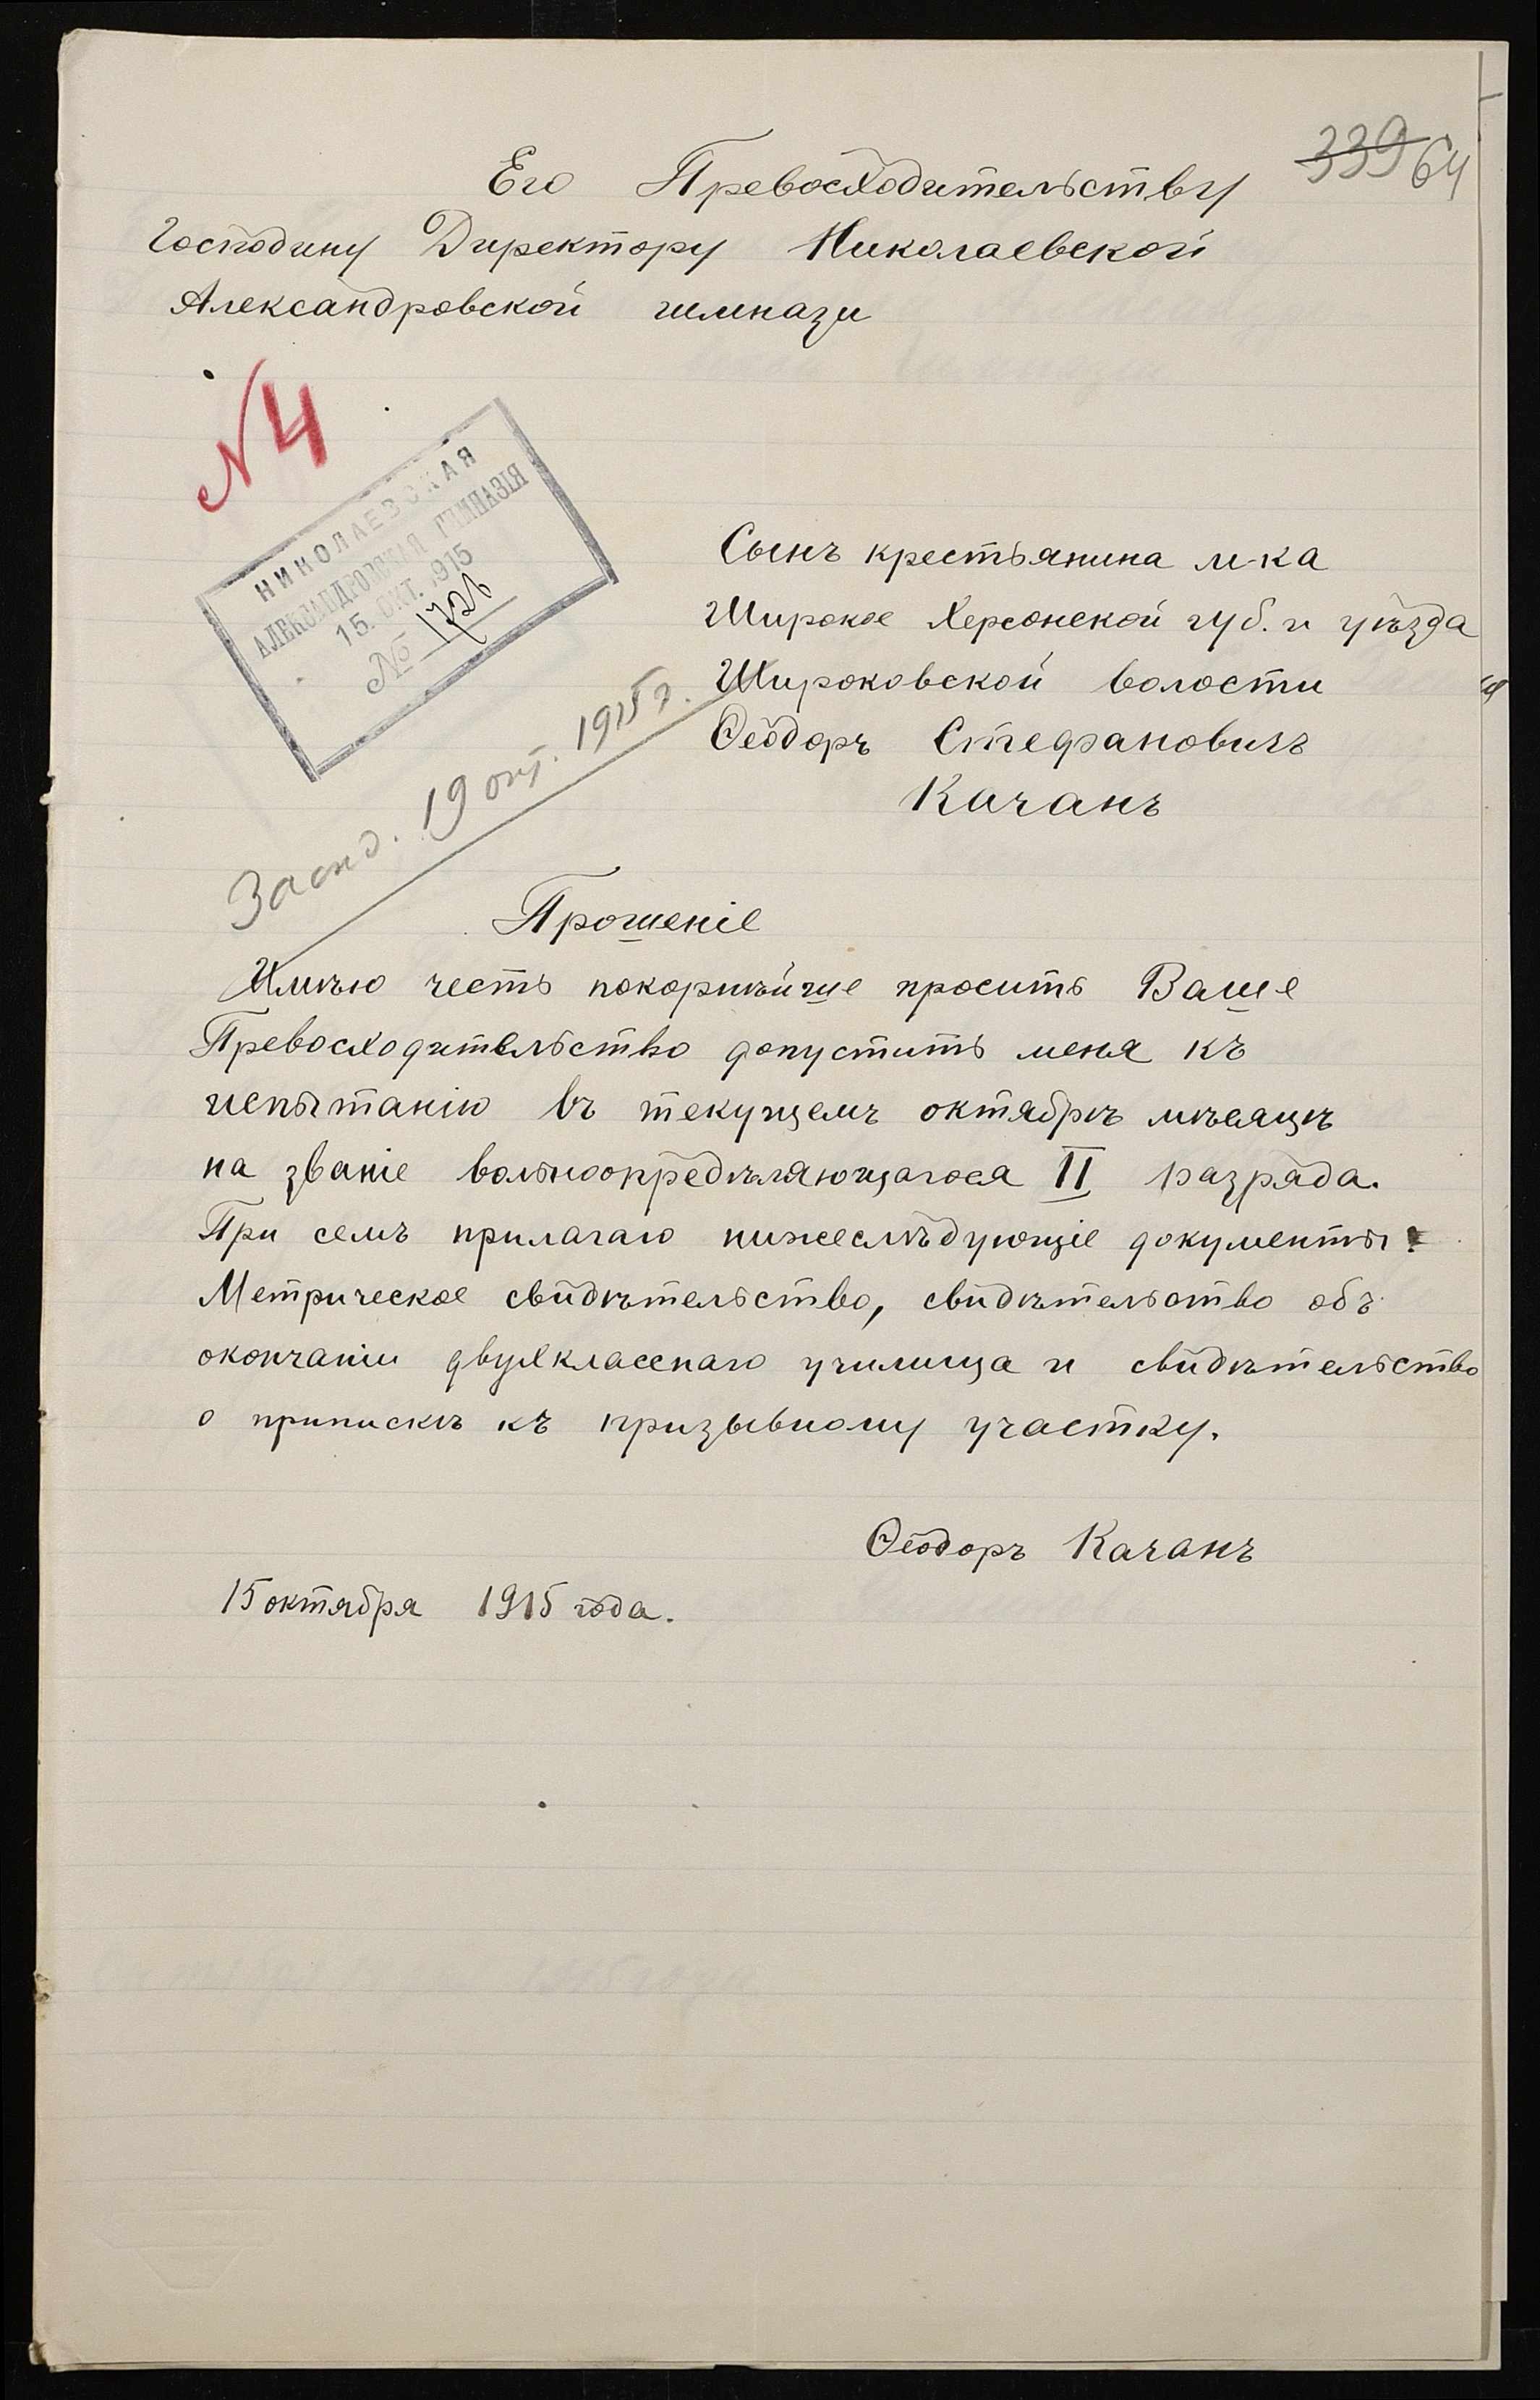 339 64
Его Превосходительству
Господину Директору Николаевской
Александровской гимнази
№ 4
НИКОЛАЕВСКАЯ
АЛЕКСАНДРОВСКАЯ ГИМНАЗІЯ
15. ОКТ. 1915
№
Сынъ крестьянина м-ка
Широкое Херсонской губ. и уѣзда
Широковской волости
Ѳеодоръ Стефановичъ
Качанъ
19 окт. 1915 г.
Прошеніе
Имѣю честь покорнѣйше просить Ваше
Превосходительство допустить меня къ
испытанію въ текущемъ октябрѣ мѣсяцѣ
на званіе вольноопредѣляющагося II разряда.
При семъ прилагаю нижеслѣдующіе документы:
Метрическое свидѣтельство, свидѣтельство объ
окончаніи двухклассного училища и свидѣтельство
о припискѣ къ призывному участку.
Ѳеодоръ Качанъ
15 октября 1915 года.